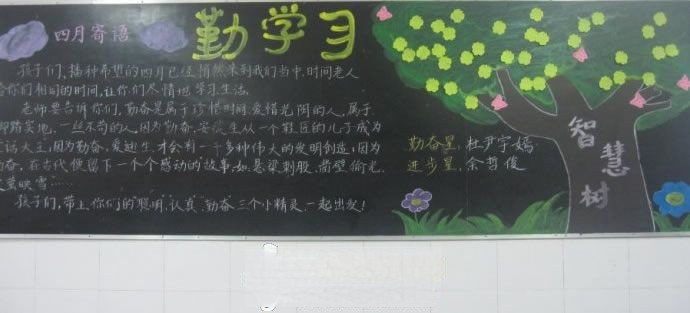 四月寄语
勤学习
孩子们，播种希望的四月已经悄然来到我们当中，时间老人
给你们相同的时间，让你们尽情地学习、生活。
老师要告诉你们，勤奋是属于珍惜时间、爱惜光阴的人，属于
脚踏实地，一丝不苟的人，因为勤奋，安徒生从一个鞋匠的儿子成为
童话大王；因为勤奋，爱迪生才会有一千多种伟大的发明创造；因为
勤奋，在古代便留下一个个感动的故事，如：悬梁刺股、凿壁偷光、
萤映雪……
孩子们，带上你们的“聪明、认真、勤奋”三个小精灵，一起出发！
勤奋星：杜尹宇嫣
进步星：余哲俊
智慧树